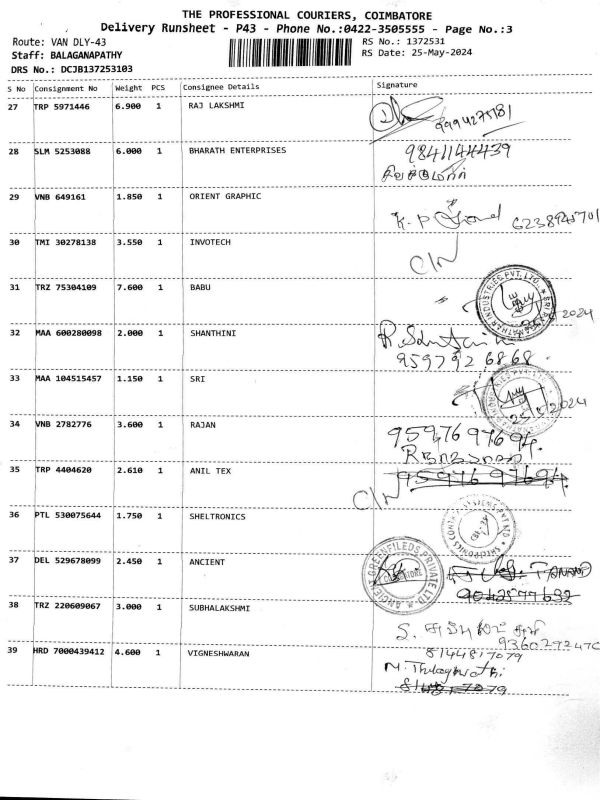 THE PROFESSIONAL COURIERS, COIMBATORE
Delivery Runsheet - P43 - Phone No.:0422-3505555 - Page No.:3
Route: VAN DLY-43 RS No.: 1372531
Staff: BALAGANAPATHY RS Date: 25-May-2024
DRS No.: DCJB137253103
S No Consignment No Weight PCS Consignee Details Signature
27 TRP 5971446 6.900 1 RAJ LAKSHMI
28 SLM 5253088 6.000 1 BHARATH ENTERPRISES 9841144439
29 VNB 649161 1.850 1 ORIENT GRAPHIC K. P
30 TMI 30278138 3.550 1 INVOTECH
31 TRZ 75304109 7.600 1 BABU
32 MAA 600280098 2.000 1 SHANTHINI
9597926868
33 MAA 104515457 1.150 1 SRI
34 VNB 2782776 3.600 1 RAJAN 9597697694.
35 TRP 4404620 2.610 1 ANIL TEX 9597697694.
36 PTL 530075644 1.750 1 SHELTRONICS
37 DEL 529678099 2.450 1 ANCIENT
ANCIENT GREENFILEDS PRIVATE LTD
38 TRZ 220609067 3.000 1 SUBHALAKSHMI
39 HRD 7000439412 4.600 1 VIGNESHWARAN 8144817079